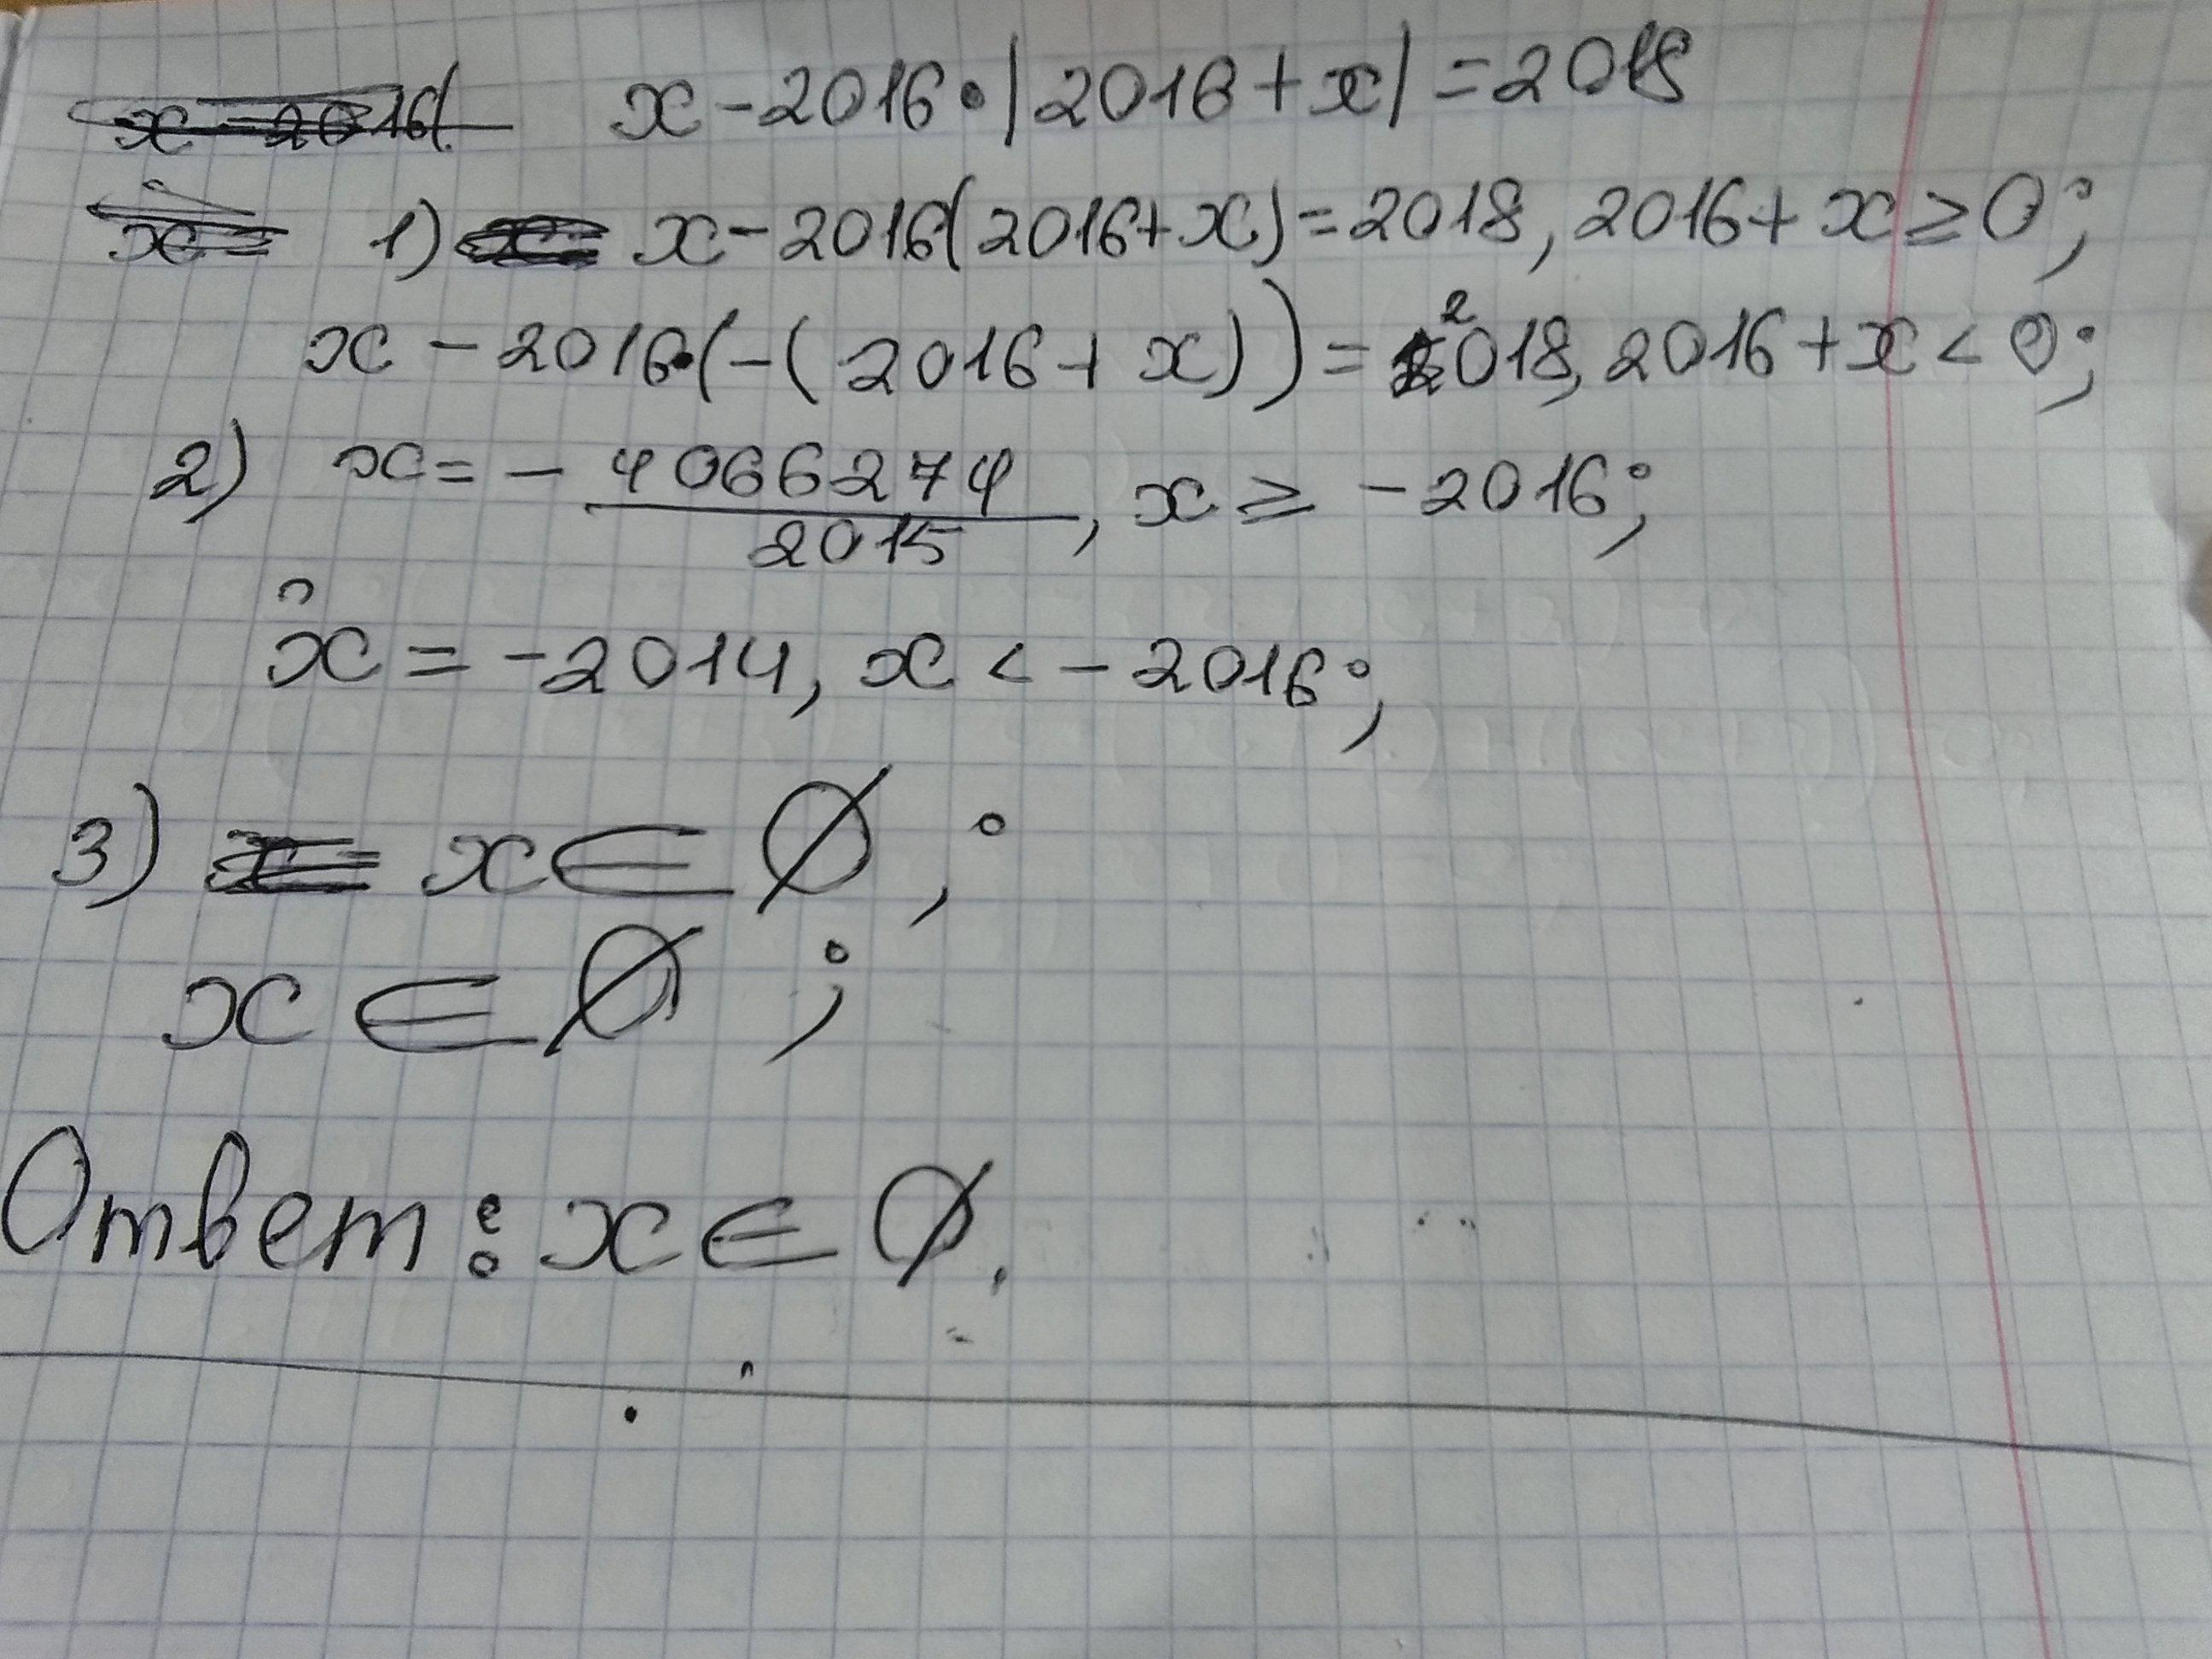 x - 2016 · |2016 + x| = 2018
1) x - 2016(2016 + x) = 2018, 2016 + x ≥ 0;
x - 2016·(-(2016 + x)) = 2018, 2016 + x < 0;
2) x = - 4066274/2015, x ≥ -2016;
x = -2014, x < -2016;
3) x ∈ Ø;
x ∈ Ø;
Ответ: x ∈ Ø.